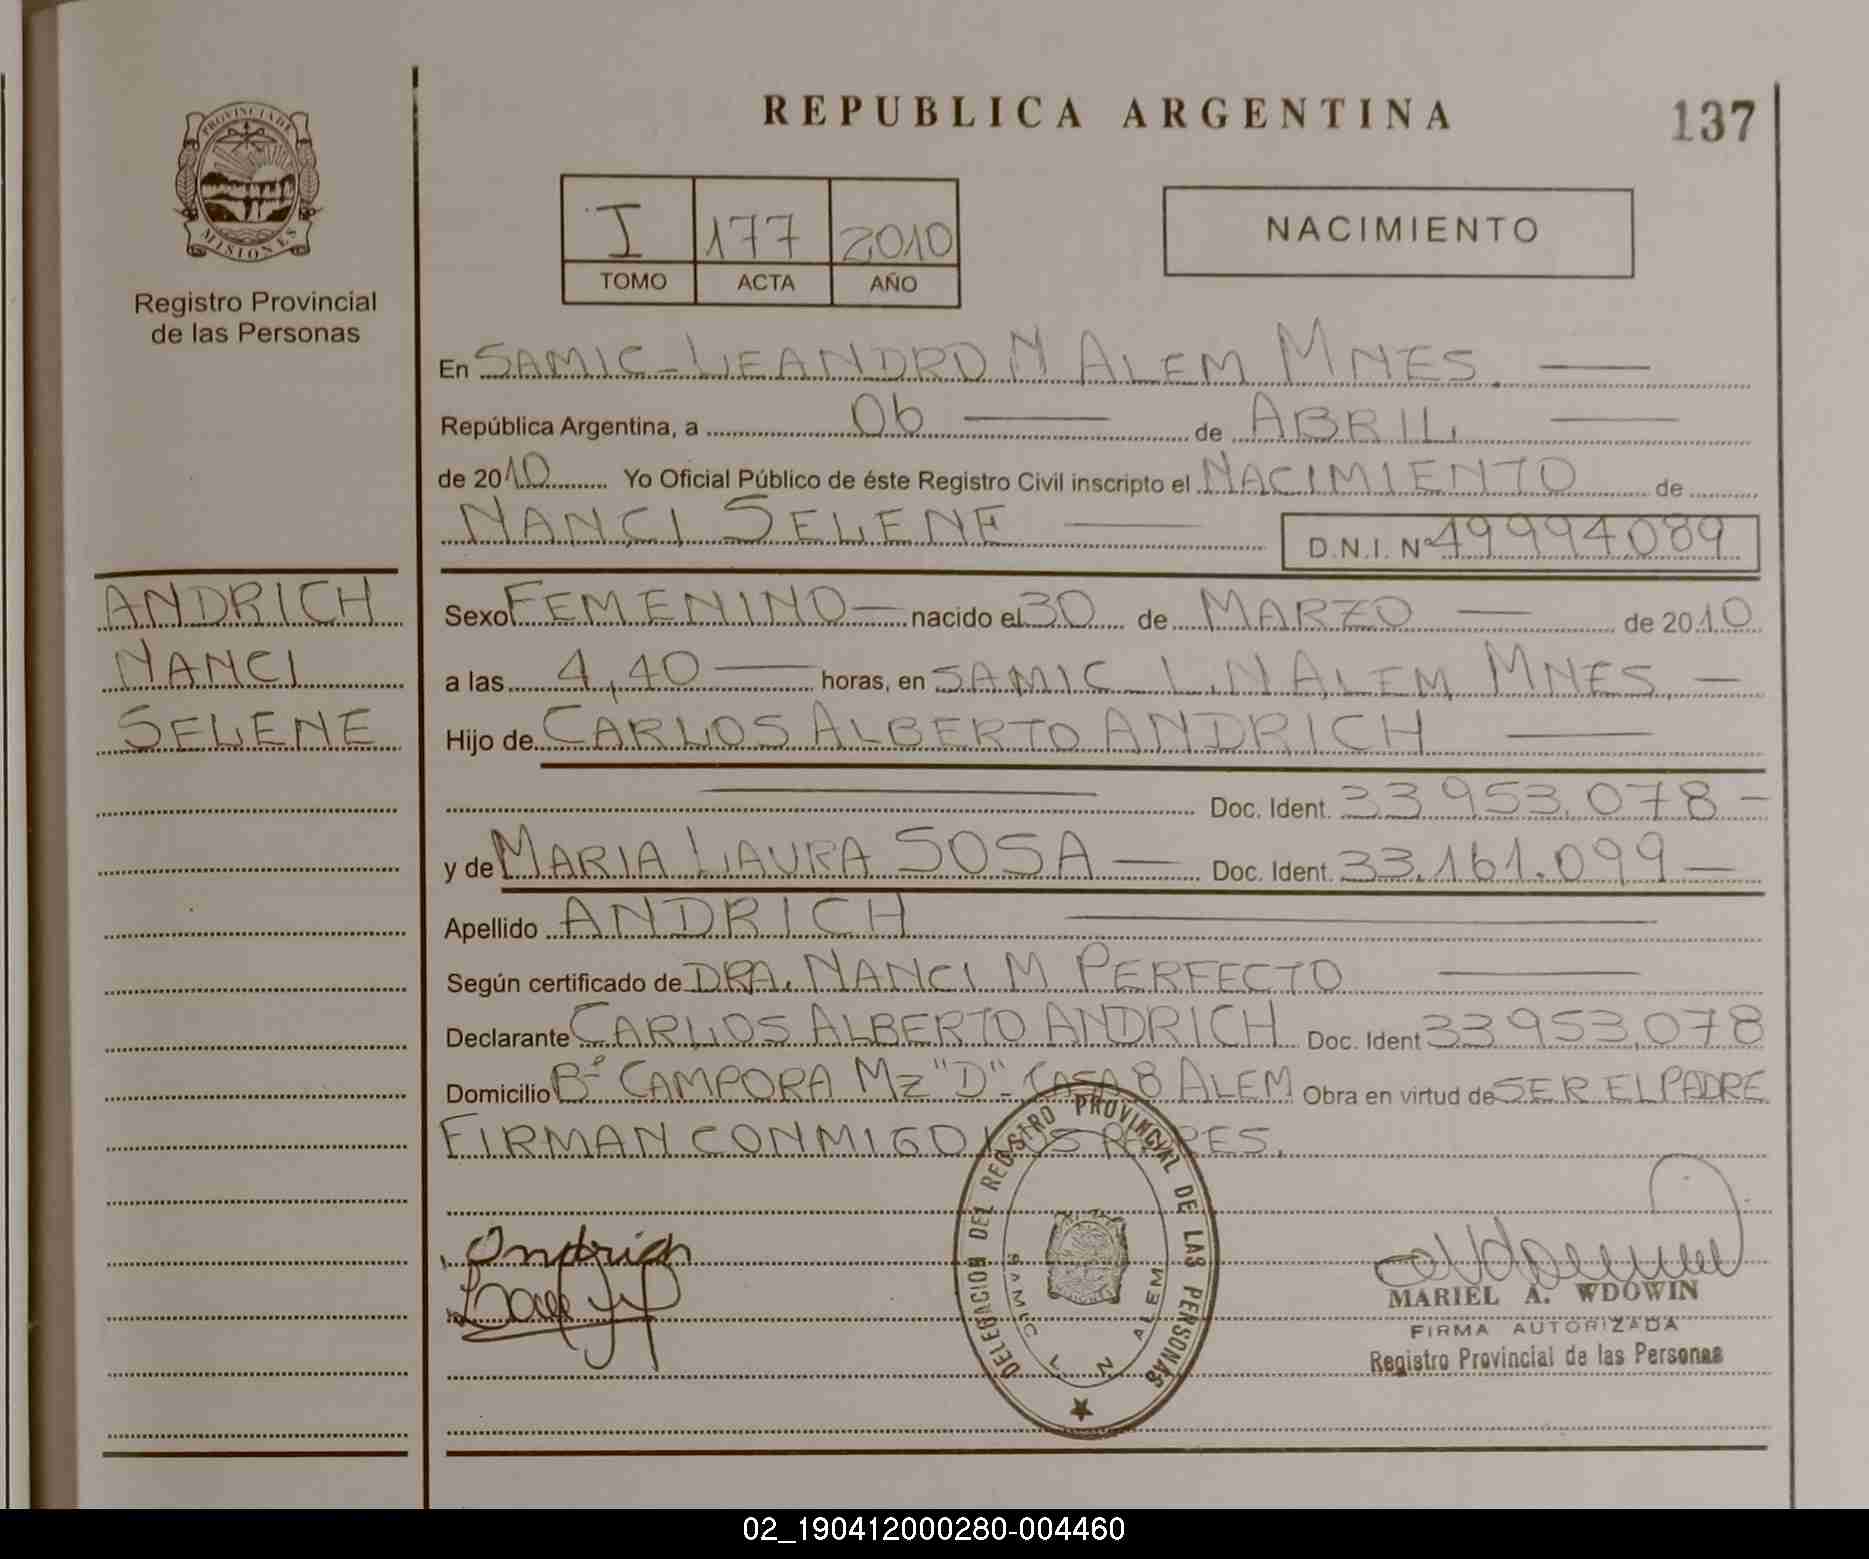 PROVINCIA DE
MISIONES
Registro Provincial
de las Personas
ANDRICH
NANCI
SELENE
REPUBLICA ARGENTINA
137
I 177 2010
TOMO ACTA AÑO
NACIMIENTO
En SAMIC - LEANDRO N ALEM MNES.
República Argentina, a 06 de ABRIL
de 2010 Yo Oficial Público de éste Registro Civil inscripto el NACIMIENTO de
NANCI SELENE D.N.I. Nº 49994089
Sexo FEMENINO — nacido el 30 de MARZO — de 2010
a las 4,40 — horas, en SAMIC L.N ALEM MNES. —
Hijo de CARLOS ALBERTO ANDRICH —
Doc. Ident. 33.953.078 —
y de MARIA LAURA SOSA — Doc. Ident. 33.161.099 —
Apellido ANDRICH
Según certificado de DRA. NANCI M PERFECTO
Declarante CARLOS ALBERTO ANDRICH Doc. Ident 33.953.078
Domicilio Bº CAMPORA Mz "D" - CASA 8 ALEM Obra en virtud de SER EL PADRE
FIRMAN CONMIGO LOS PADRES.
Andrich
DELEGACION DEL REGISTRO PROVINCIAL DE LAS PERSONAS
SAMIC L. N ALEM
MARIEL A. WDOWIN
FIRMA AUTORIZADA
Registro Provincial de las Personas
02_190412000280-004460